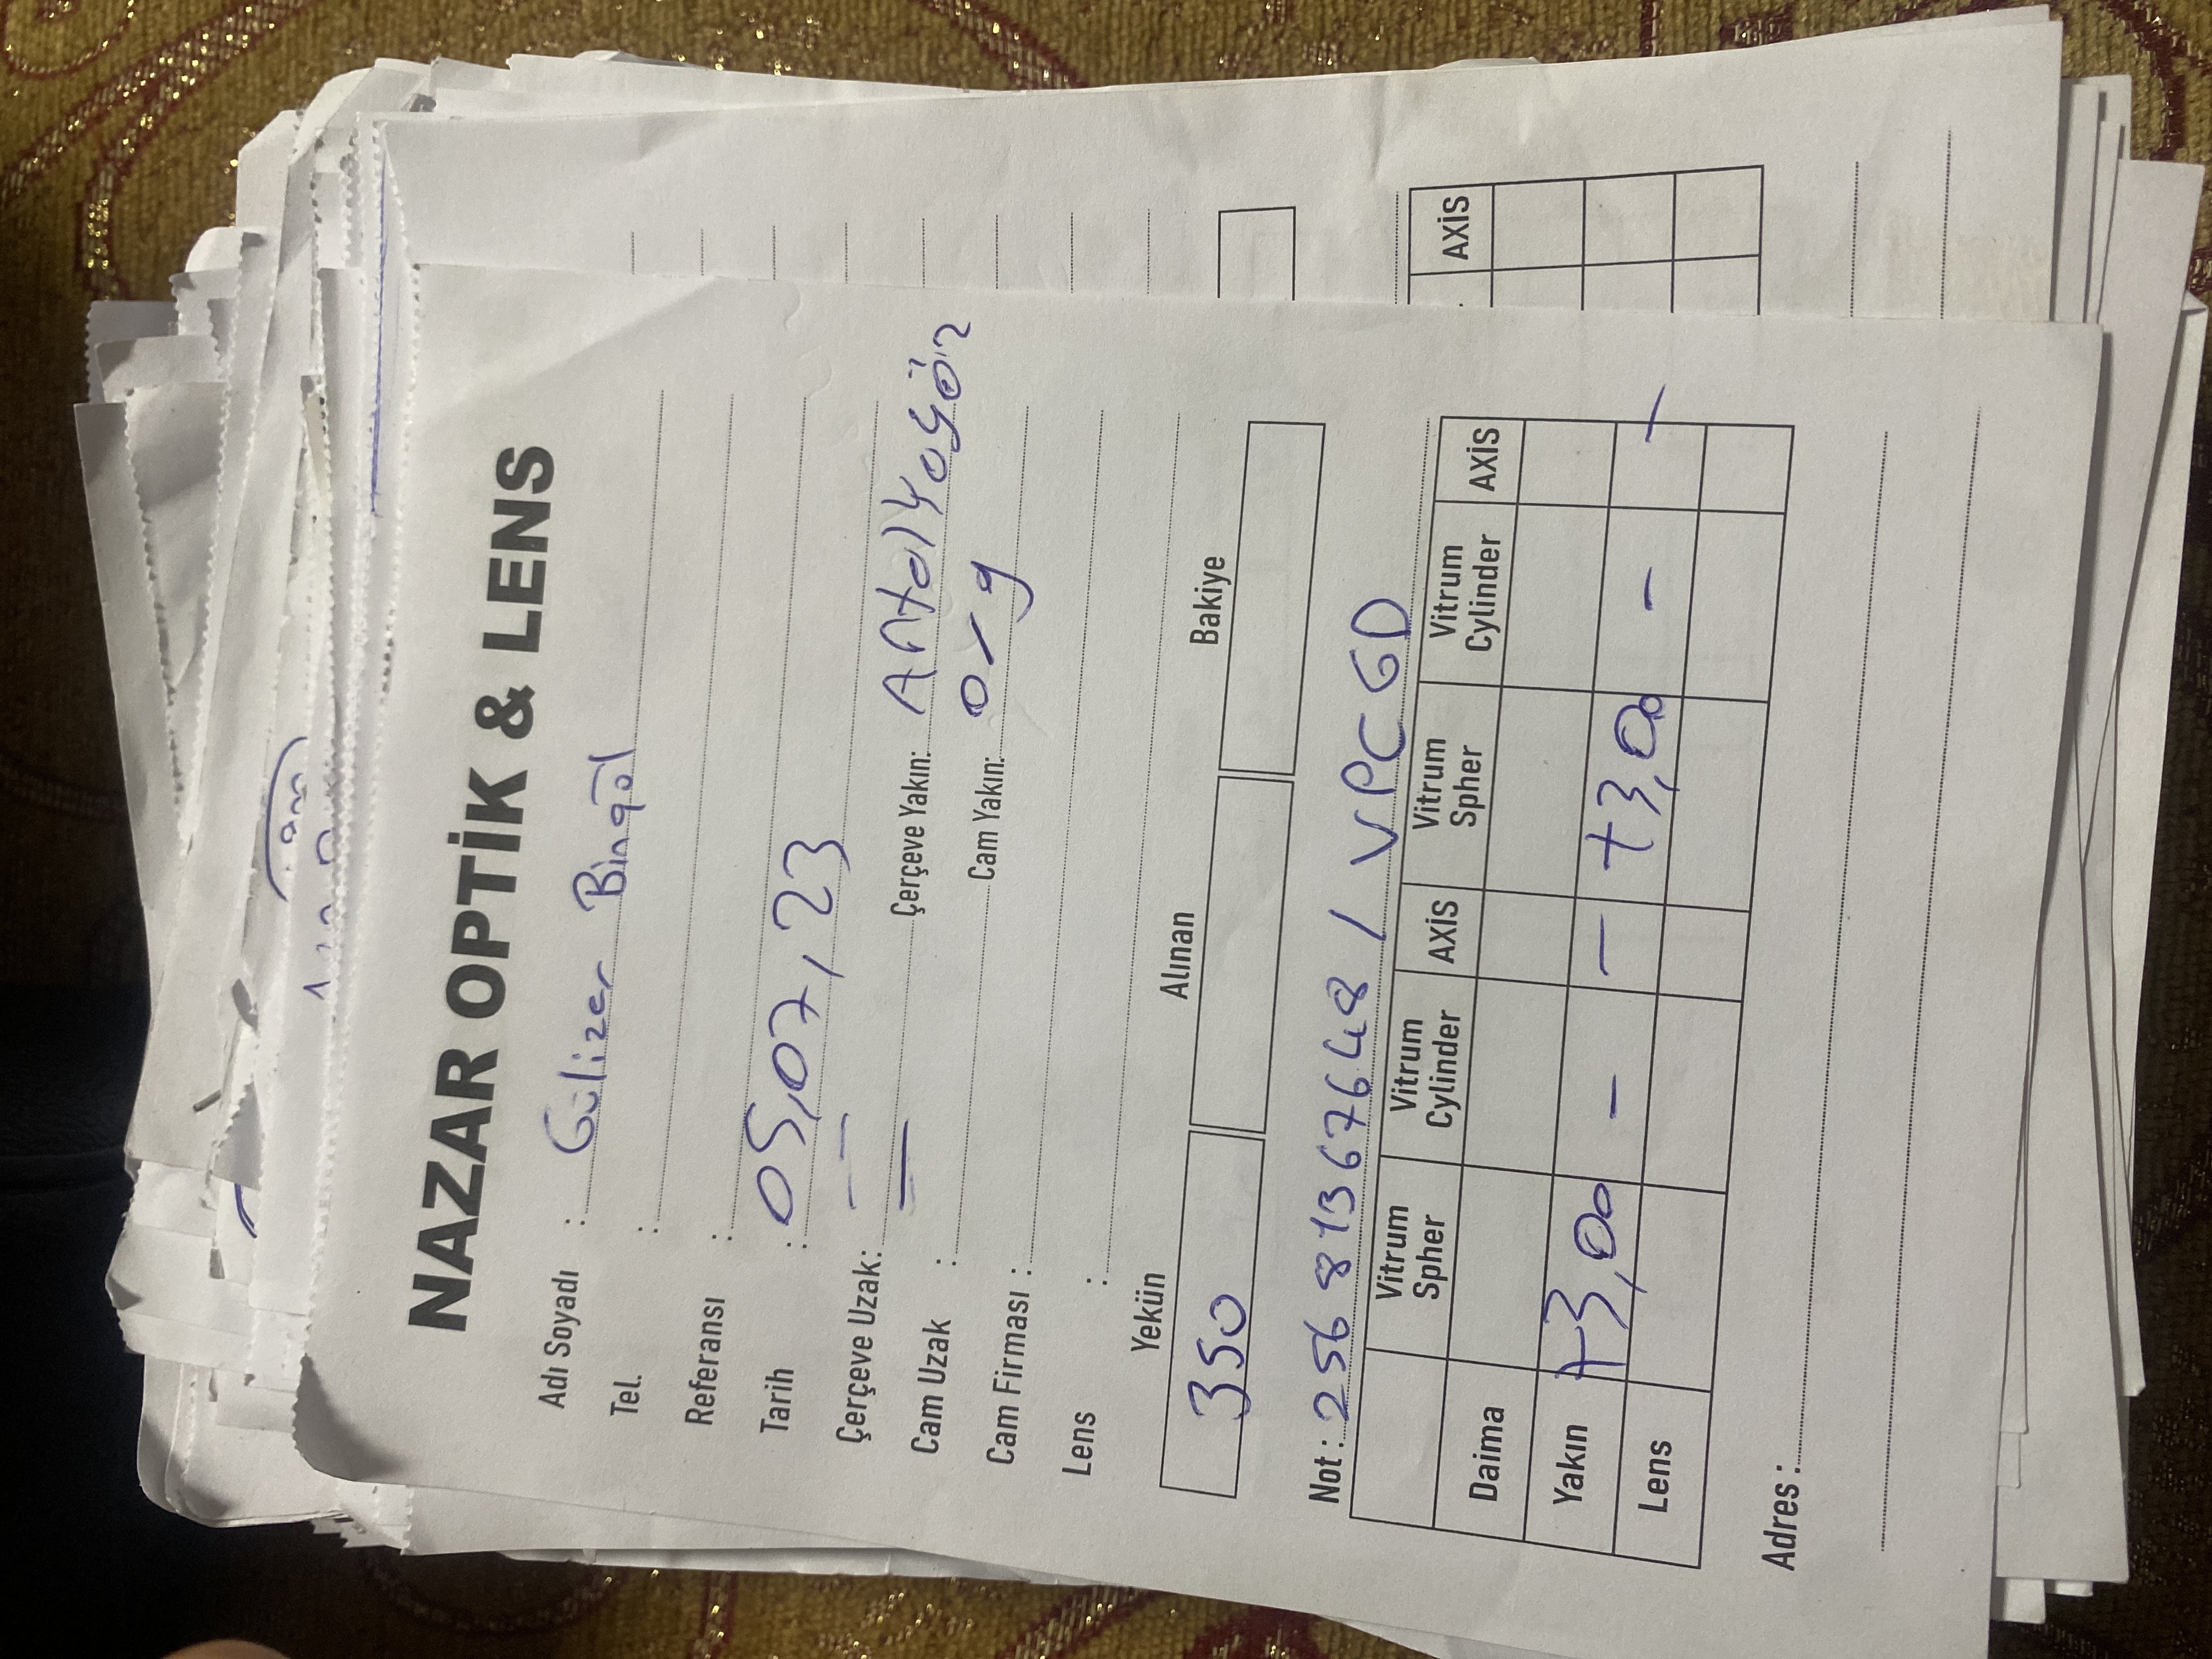 NAZAR OPTİK & LENS
Adı Soyadı : Gülizer Bingöl
Tel. :
Referansı :
Tarih : 05,07,23
Çerçeve Uzak: Çerçeve Yakın: Antalyagöz
Cam Uzak : Cam Yakın: org
Cam Firması :
Lens :
Yekün Alınan Bakiye
350
Not : 25681367648 / VPCGD
Vitrum Spher Vitrum Cylinder AXİS Vitrum Spher Vitrum Cylinder AXİS
AXİS
Daima
Yakın +3,00 - - +3,00 - -
Lens
Adres :